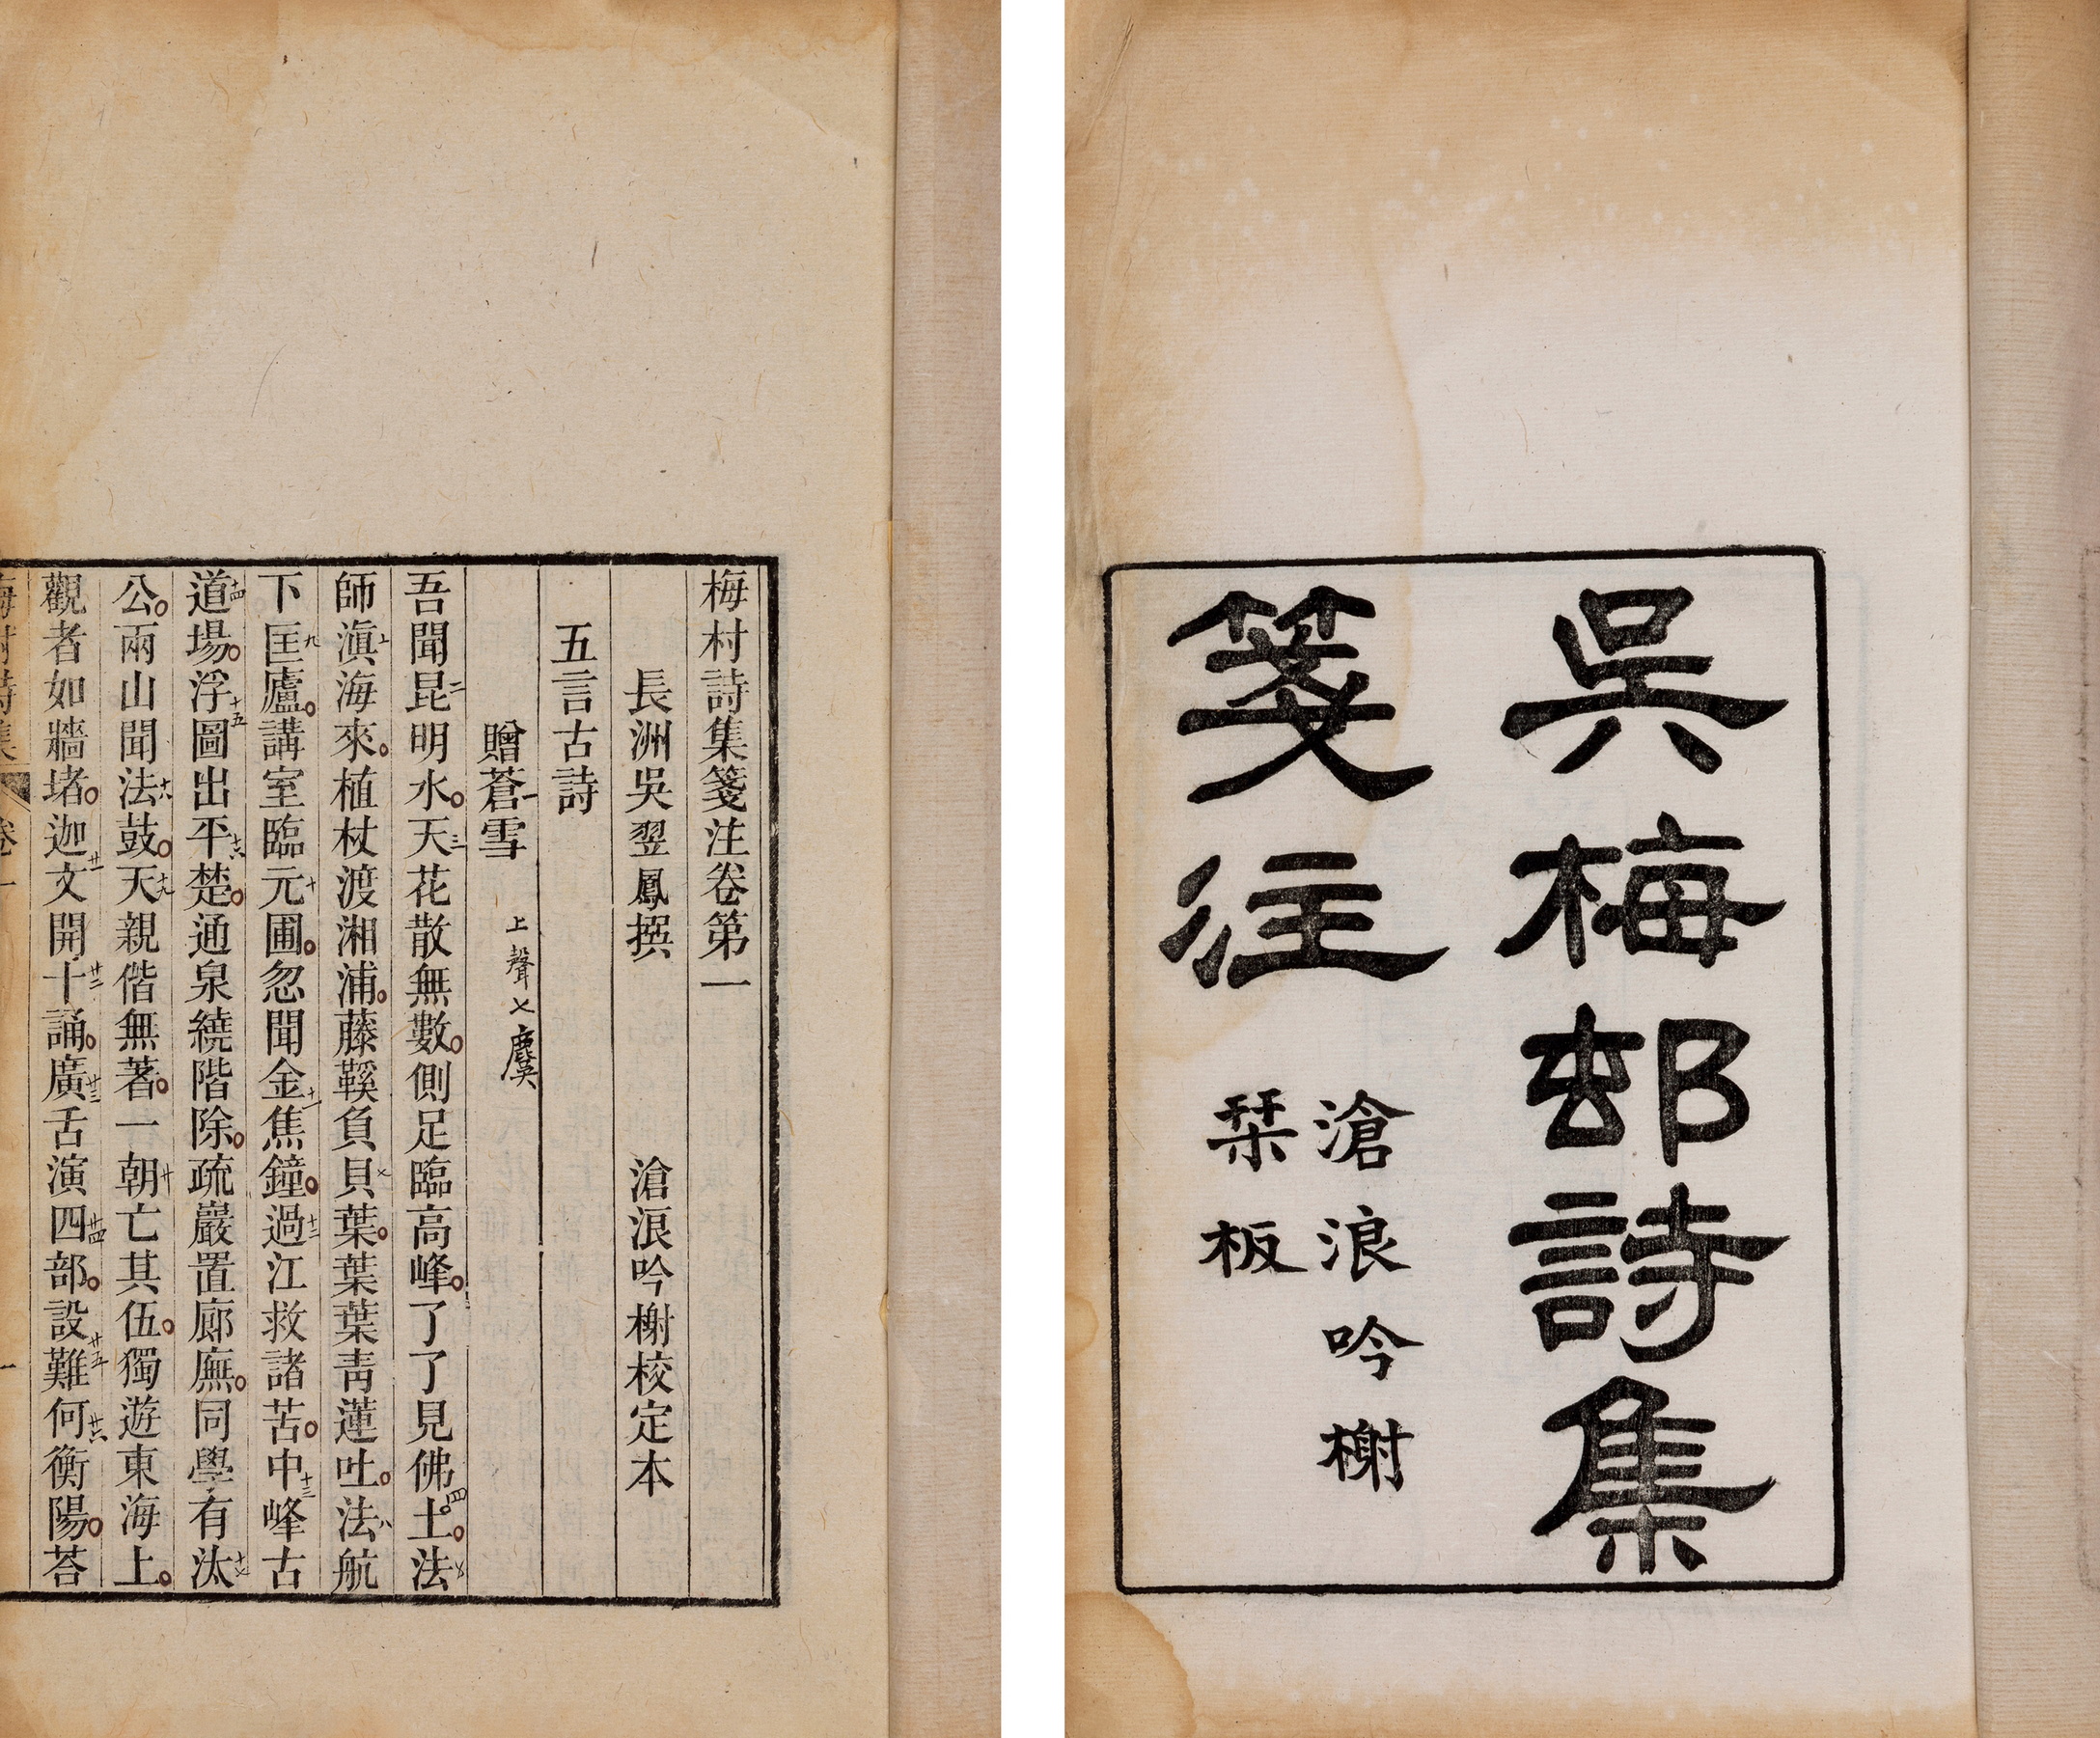 吳梅邨詩集
箋注
滄浪吟榭
栞板
梅村詩集箋注卷第一
長洲吳翌鳳撰 滄浪吟榭校定本
五言古詩
贈蒼雪 上聲七麌
吾聞昆明水天花散無數側足臨高峰了了見佛土法
師滇海來植杖渡湘浦藤鞵負貝葉葉葉青蓮吐法航
下匡廬講室臨元圃忽聞金焦鐘過江救諸苦中峰古
道場浮圖出平楚通泉繞階除疏巖置廊廡同學有汰
公兩山聞法鼓天親偕無著一朝亡其伍獨遊東海上
觀者如牆堵迦文開十誦廣舌演四部設難何衡陽荅
梅村詩集 卷一 一